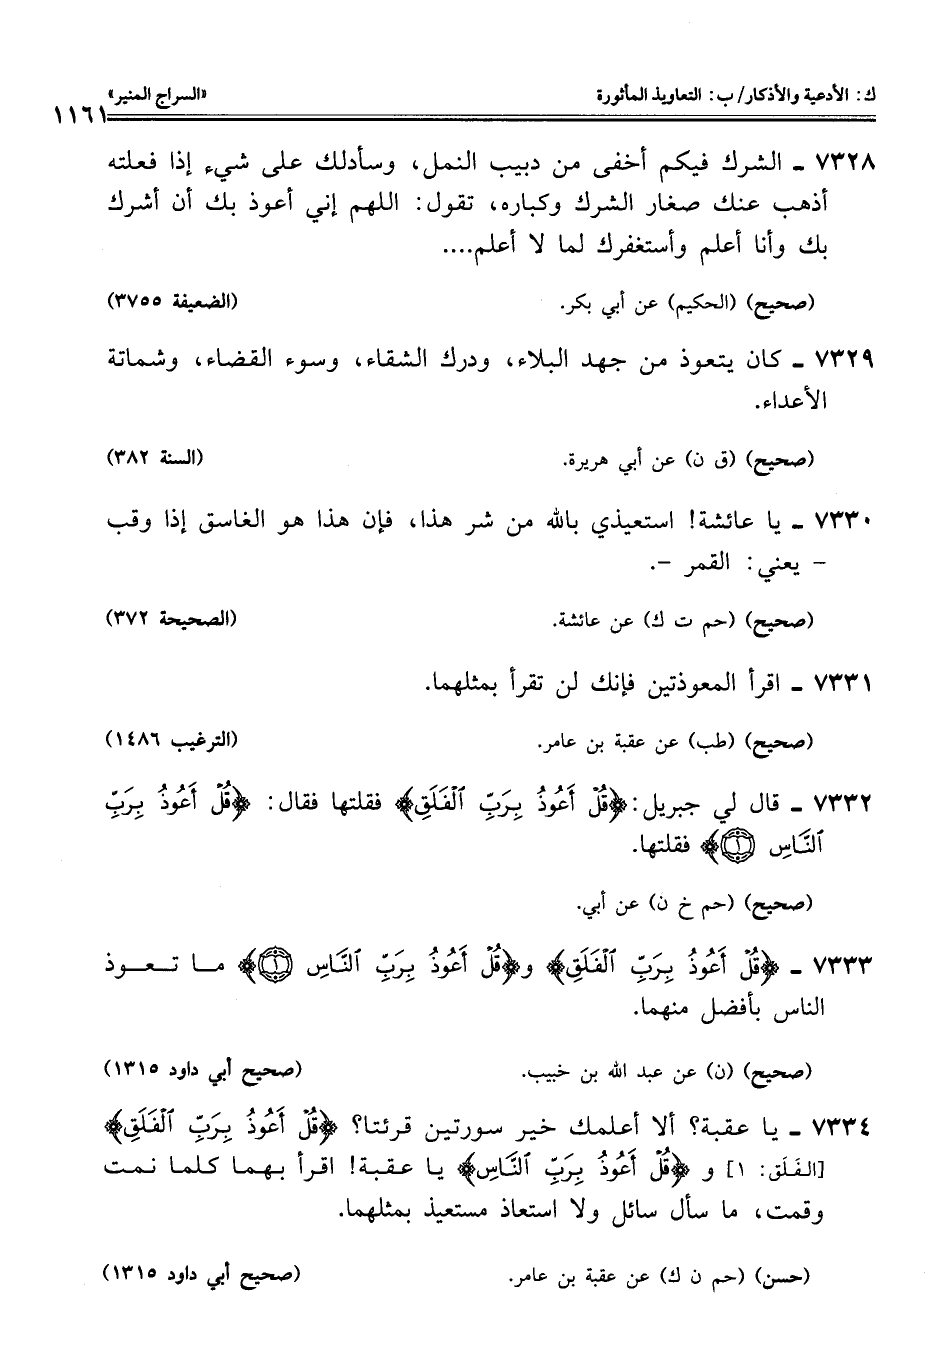 ك: الأدعية والأذكار/ ب: التعاويذ المأثورة
«السراج المنير»
١١٦١
٧٣٢٨ ـ الشرك فيكم أخفى من دبيب النمل، وسأدلك على شيء إذا فعلته
أذهب عنك صغار الشرك وكباره، تقول: اللهم إني أعوذ بك أن أشرك
بك وأنا أعلم وأستغفرك لما لا أعلم....
(صحيح) (الحكيم) عن أبي بكر. (الضعيفة ٣٧٥٥)
٧٣٢٩ ـ كان يتعوذ من جهد البلاء، ودرك الشقاء، وسوء القضاء، وشماتة
الأعداء.
(صحيح) (ق ن) عن أبي هريرة. (السنة ٣٨٢)
٧٣٣٠ ـ يا عائشة! استعيذي بالله من شر هذا، فإن هذا هو الغاسق إذا وقب
- يعني: القمر -.
(صحيح) (حم ت ك) عن عائشة. (الصحيحة ٣٧٢)
٧٣٣١ ـ اقرأ المعوذتين فإنك لن تقرأ بمثلهما.
(صحيح) (طب) عن عقبة بن عامر. (الترغيب ١٤٨٦)
٧٣٣٢ ـ قال لي جبريل: ﴿قُلْ أَعُوذُ بِرَبِّ ٱلْفَلَقِ﴾ فقلتها فقال: ﴿قُلْ أَعُوذُ بِرَبِّ
ٱلنَّاسِ ۝١﴾ فقلتها.
(صحيح) (حم خ ن) عن أبي.
٧٣٣٣ ـ ﴿قُلْ أَعُوذُ بِرَبِّ ٱلْفَلَقِ﴾ و﴿قُلْ أَعُوذُ بِرَبِّ ٱلنَّاسِ ۝١﴾ ما تعوذ
الناس بأفضل منهما.
(صحيح) (ن) عن عبد الله بن خبيب. (صحيح أبي داود ١٣١٥)
٧٣٣٤ ـ يا عقبة؟ ألا أعلمك خير سورتين قرئتا؟ ﴿قُلْ أَعُوذُ بِرَبِّ ٱلْفَلَقِ﴾
[الفَلَق: ١] و ﴿قُلْ أَعُوذُ بِرَبِّ ٱلنَّاسِ﴾ يا عقبة! اقرأ بهما كلما نمت
وقمت، ما سأل سائل ولا استعاذ مستعيذ بمثلهما.
(حسن) (حم ن ك) عن عقبة بن عامر. (صحيح أبي داود ١٣١٥)